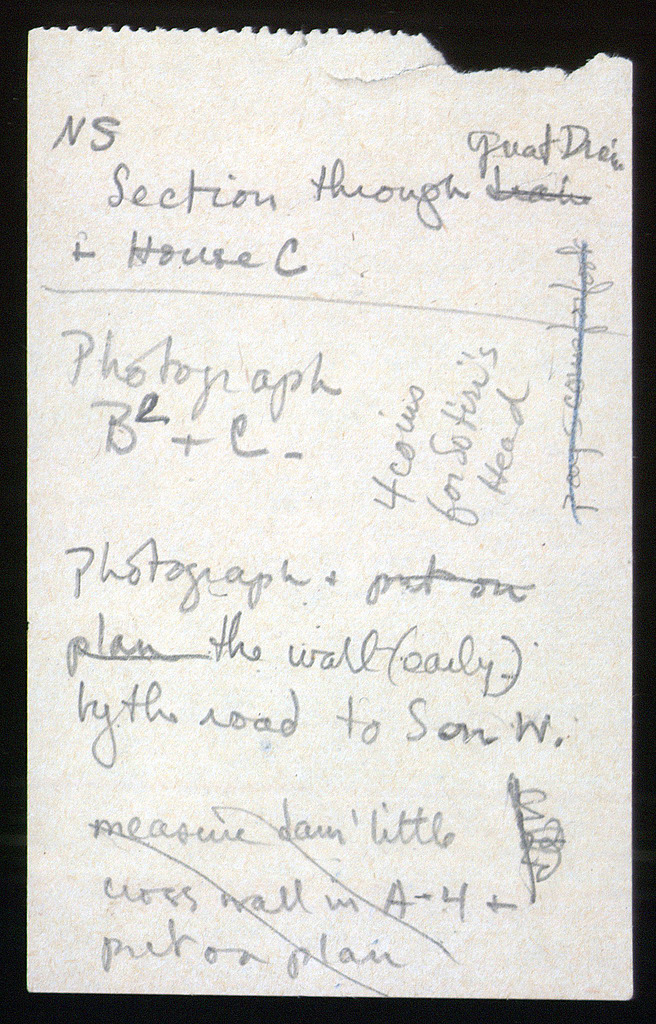 NS
Great Drain
Section through drain
+ House C
Photograph
B2 + C -
4 coins
for Sotiri's
Head
Photograph + put on
plan the wall (early)
by the road to S on W.
measure dam' little
cross wall in A-4 +
put on plan